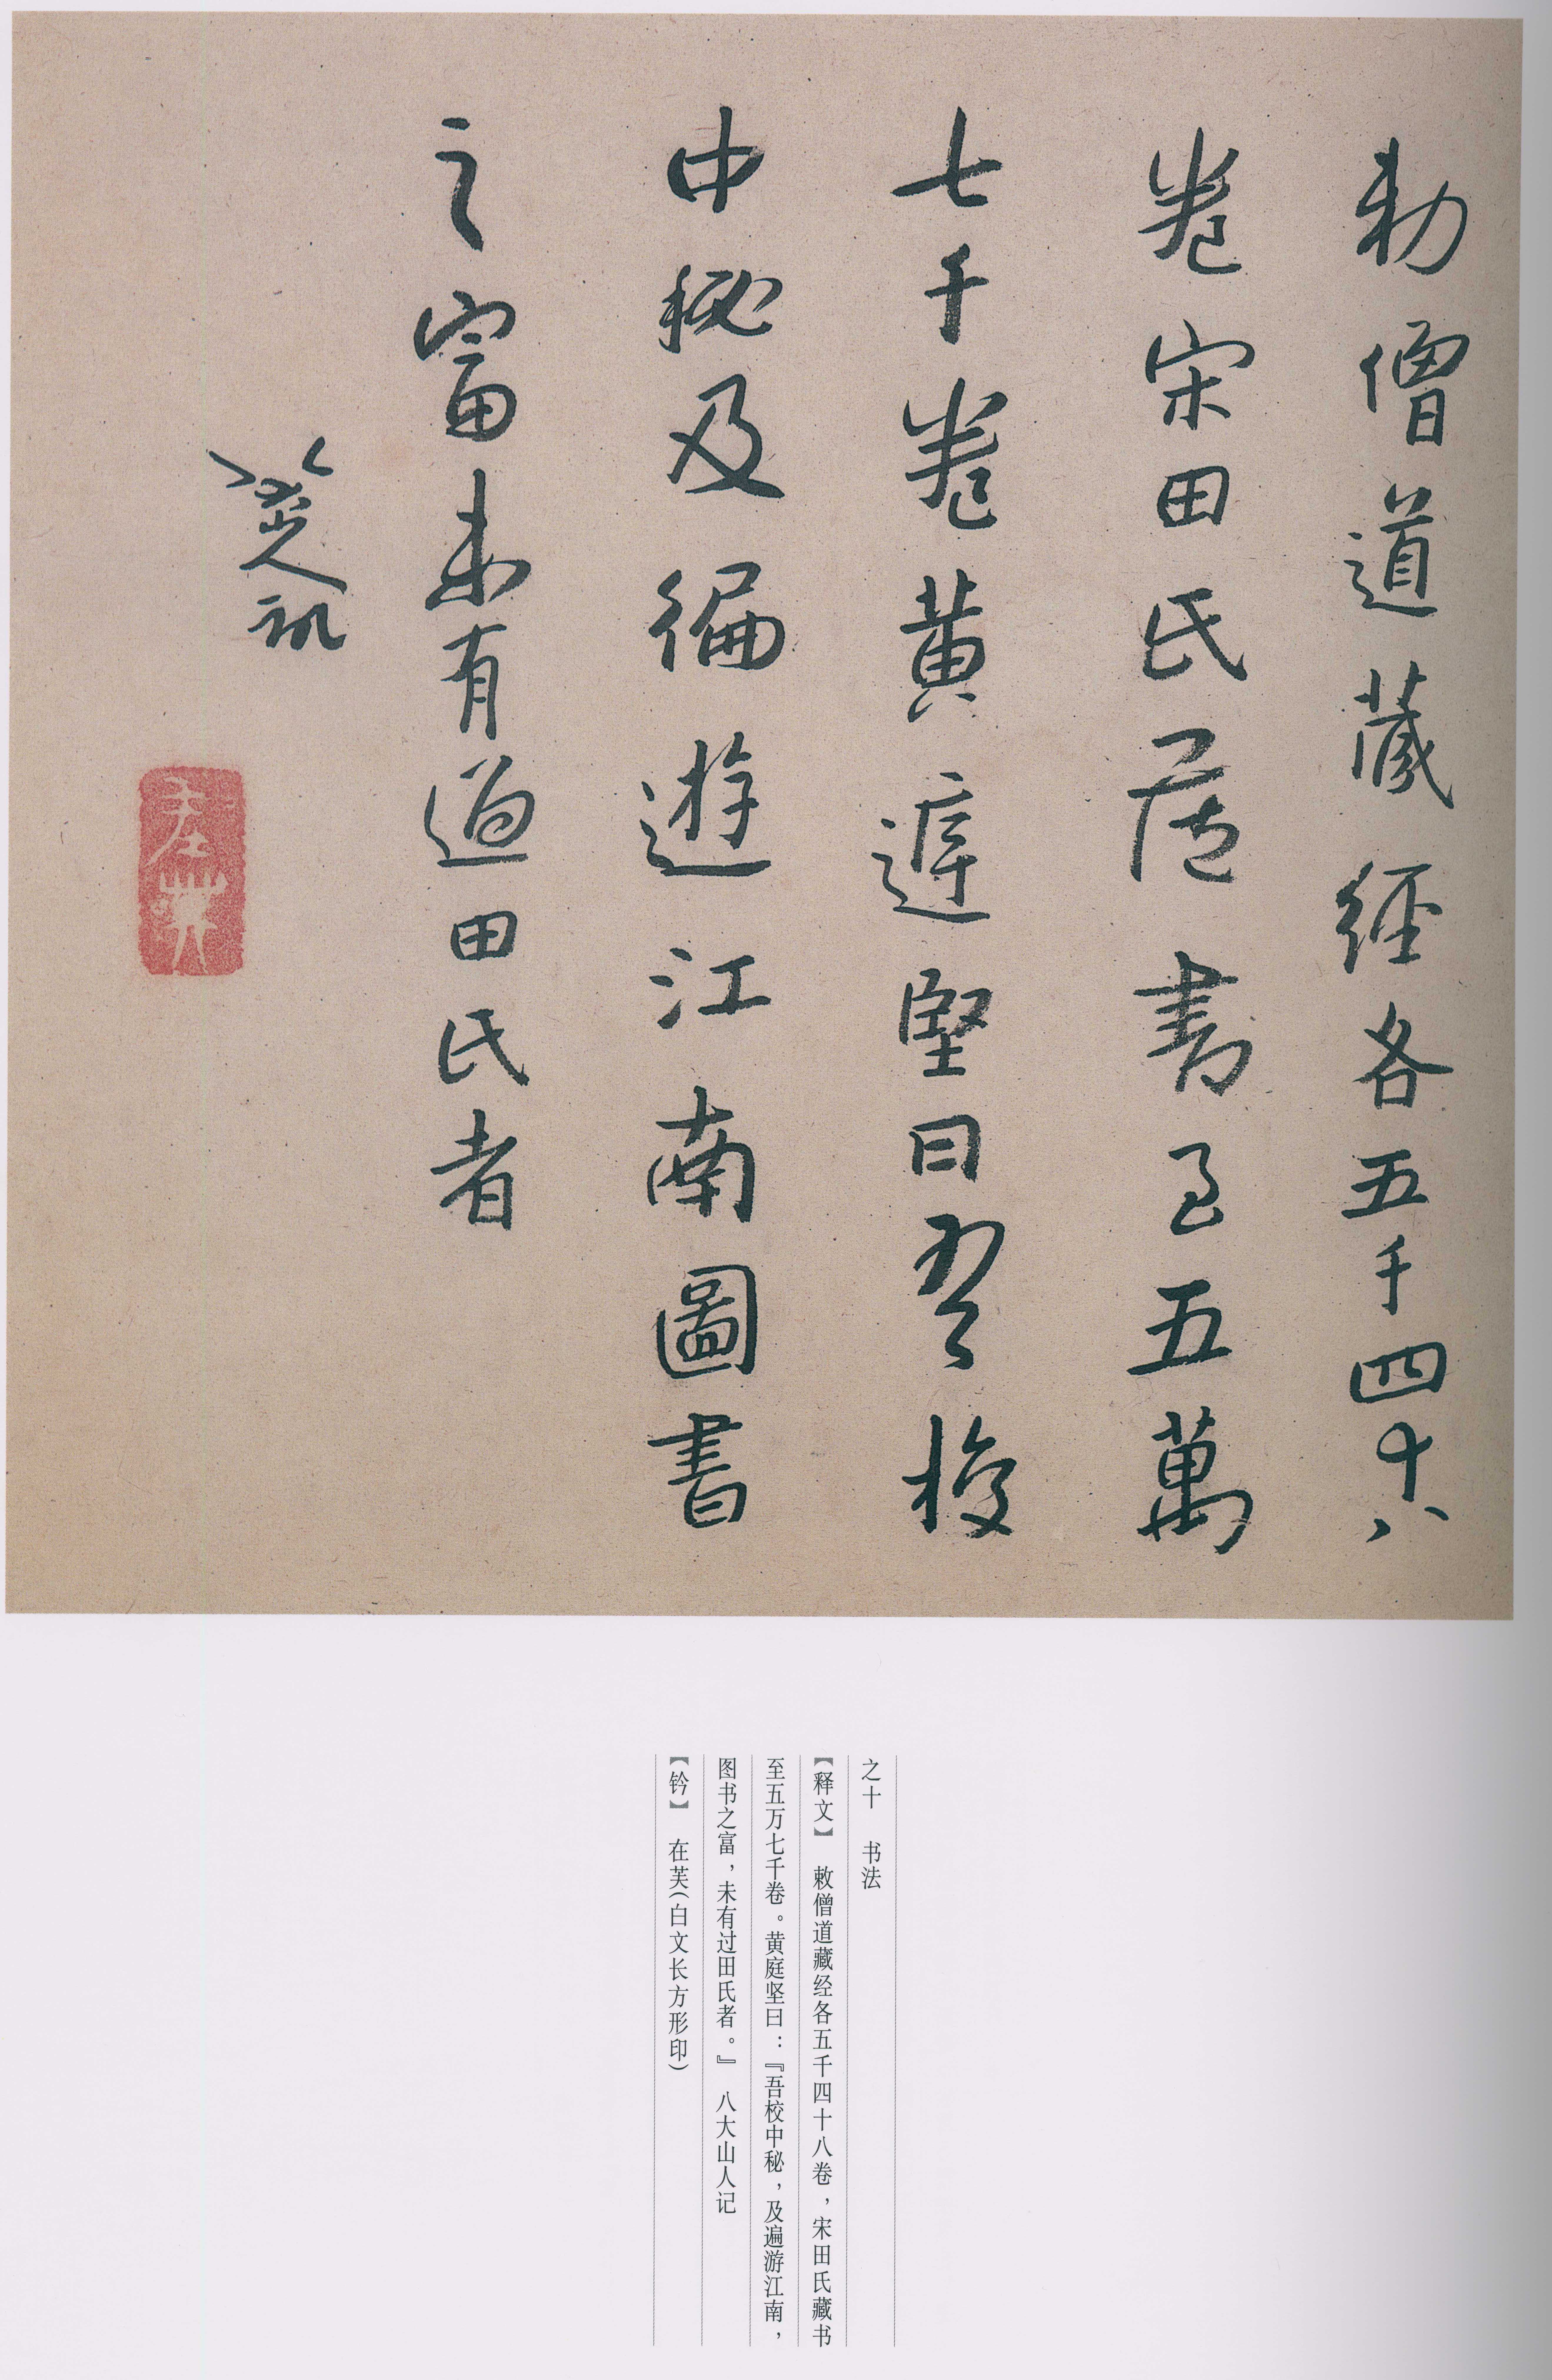 勅僧道藏經各五千四十八
卷宋田氏藏書至五萬
七千卷黄庭堅曰吾校
中秘及徧遊江南圖書
之富未有過田氏者
八大山人記
在芙
之十　书法
【释文】　敕僧道藏经各五千四十八卷，宋田氏藏书
至五万七千卷。黄庭坚曰：『吾校中秘，及遍游江南，
图书之富，未有过田氏者。』　八大山人记
【钤】　在芙（白文长方形印）